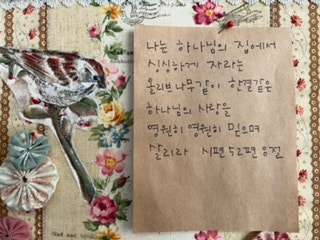 나는 하나님의 집에서
싱싱하게 자라는
올리브 나무같이 한결같은
하나님의 사랑을
영원히 영원히 믿으며
살리라 시편 52편 8절